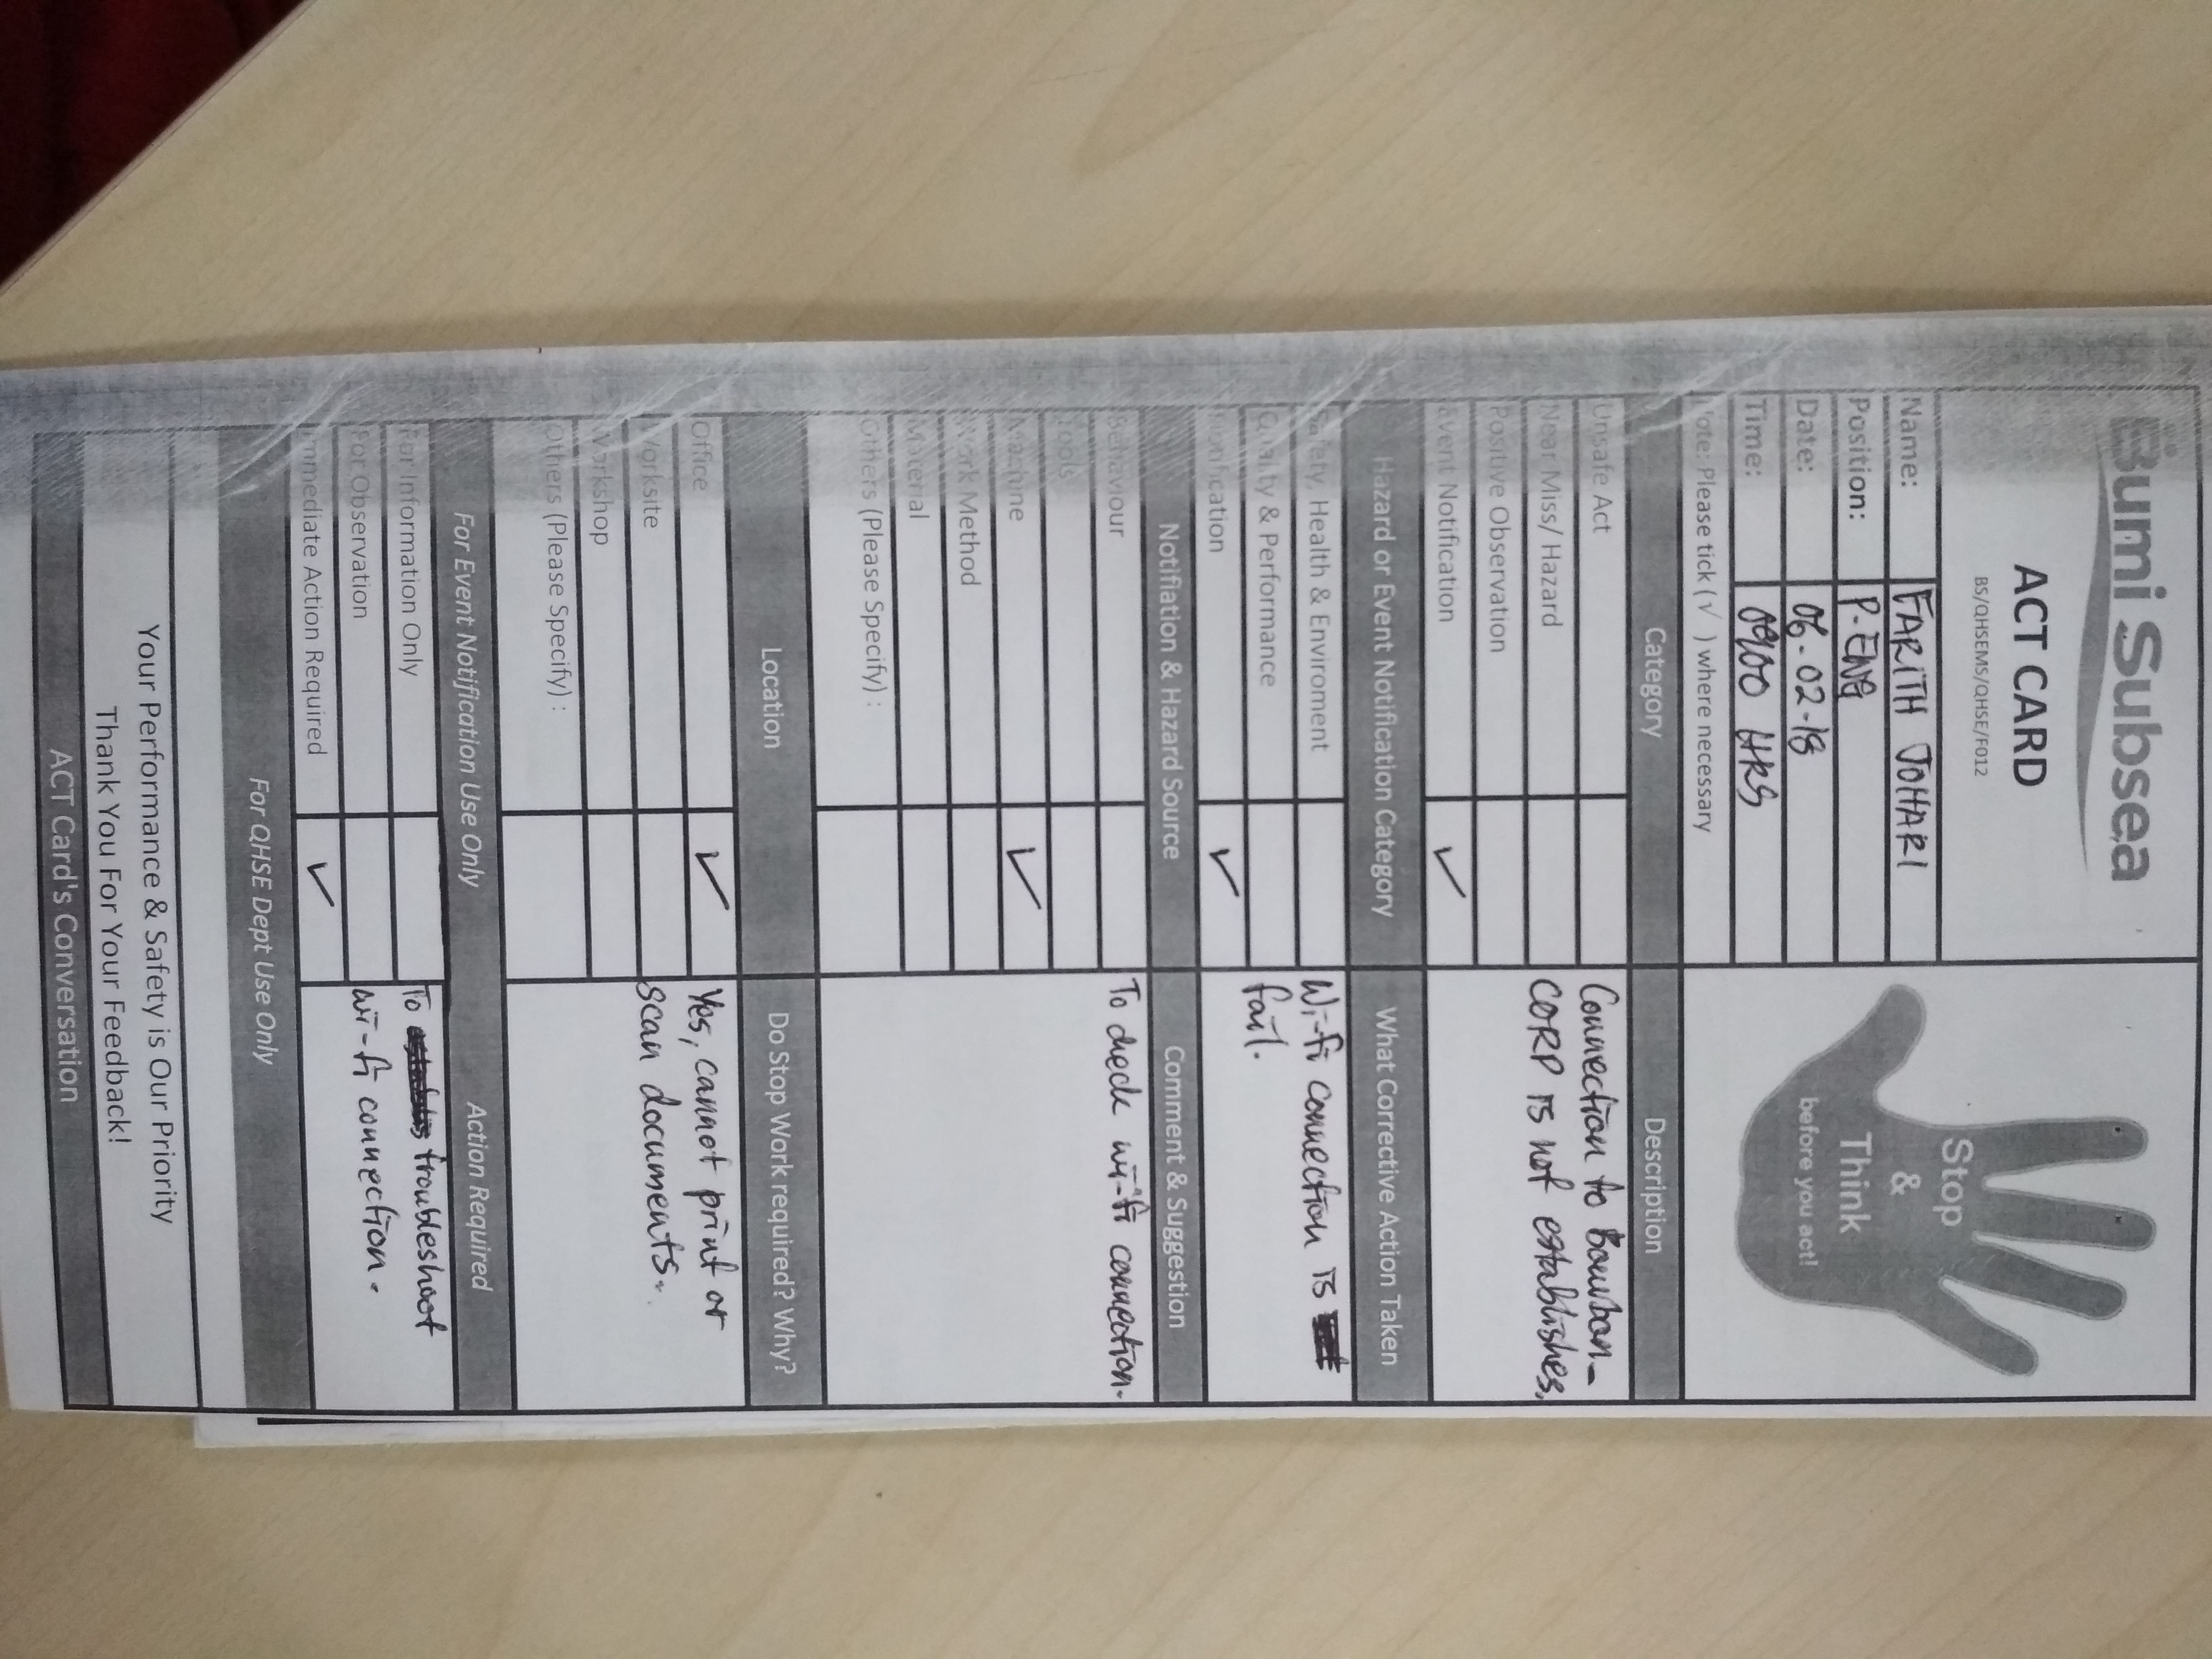 Bumi Subsea
ACT CARD
BS/QHSEMS/QHSE/F012
Stop
&
Think
before you act!
Name: FARITH JOHARI
Position: P.ENG
Date: 06.02.18
Time: 0900 HRS
Note: Please tick (√ ) where necessary
Category Description
Unsafe Act Connection to Bourbon-
Near Miss/ Hazard CORP is not establishes,
Positive Observation
Event Notification ✓
Hazard or Event Notification Category What Corrective Action Taken
Safety, Health & Enviroment Wi-fi connection is
Quality & Performance fail.
Notification ✓
Notifiation & Hazard Source Comment & Suggestion
Behaviour To check wi-fi connection.
Tools
Machine ✓
Work Method
Material
Others (Please Specify) :
Location Do Stop Work required? Why?
Office ✓ Yes, cannot print or
Worksite scan documents.
Workshop
Others (Please Specify) :
For Event Notification Use Only Action Required
For Information Only To troubleshoot
For Observation wi-fi connection.
Immediate Action Required ✓
For QHSE Dept Use Only
Your Performance & Safety is Our Priority
Thank You For Your Feedback!
ACT Card's Conversation